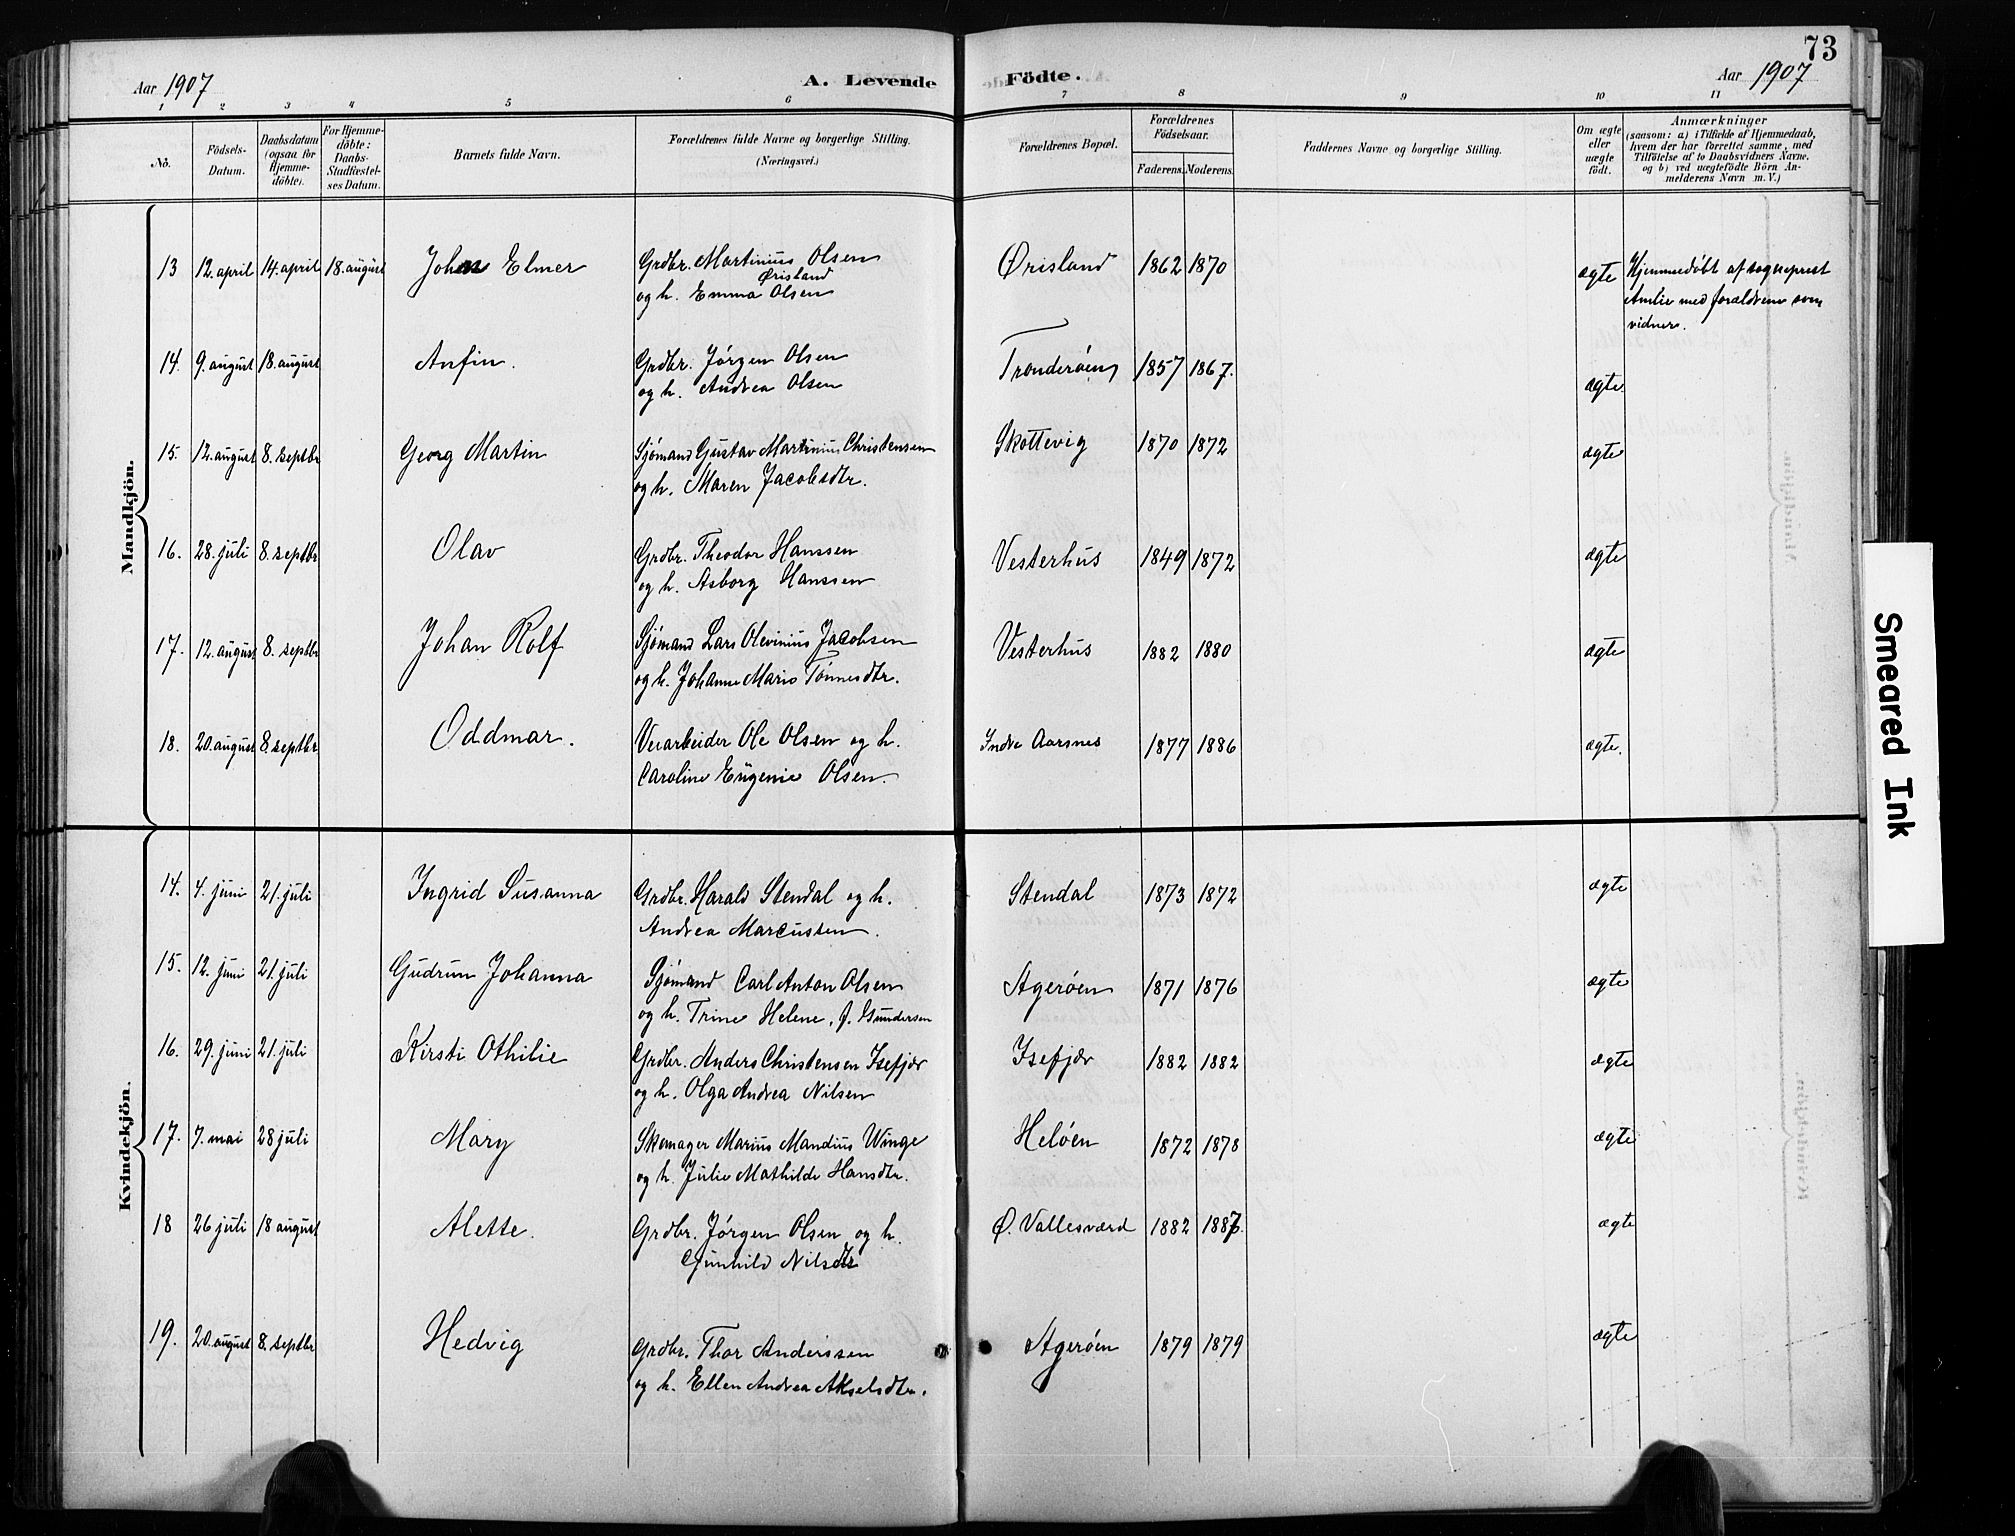 73
Aar 1907
A. Levende Födte.
Aar 1907
1 2 3 4 5 6 7 8 9 10 11
No.
Födsels-Datum.
Daabsdatum (ogsaa for Hjemme-döbte).
For Hjemme-döbte: Daabs-Stadfæstel-ses Datum.
Barnets fulde Navn.
Forældrenes fulde Navne og borgerlige Stilling.
(Næringsvei.)
Forældrenes Bopæl.
Forældrenes Födselsaar.
Faderens. Moderens.
Faddernes Navne og borgerlige Stilling.
Om ægte eller uægte födt.
Anmærkninger
(saasom: a) i Tilfælde af Hjemmedaab,
hvem der har forrettet samme, med
Tilföielse af to Daabsvidners Navne,
og b) ved uægtefödte Börn An-
melderens Navn m. V.)
Mandkjön.
13 12. april 14. april 18. august Johan Elmer Grdbr. Martinius Olsen Ørisland 1862 1870 ægte Hjemmedøbt af sogneprest
Ørisland
og h. Emma Olsen Amlie med forældrene som
vidner.
14. 9. august 18. august Anfin. Grdbr. Jørgen Olsen Tronderøen 1857 1867. ægte.
og h. Andrea Olsen
15. 12. august 8. septbr Georg Martin Sjømand Gustav Martinius Christensen Skottevig 1870 1872 ægte
og h. Maren Jacobsdtr.
16. 28. juli 8. septbr Olav Grdbr. Theodor Hanssen Vesterhus 1849 1872 ægte
og h. Asborg Hanssen
17. 12. august 8. septbr Johan Rolf Sjømand Lars Olevinius Jacobsen Vesterhus 1882 1880 ægte
og h. Johanne Marie Tønnesdtr.
18. 20. august 8. septbr Oddmar. Veiarbeider Ole Olsen og h. Indre Aarsnes 1877 1886 ægte.
Caroline Eugenie Olsen.
Kvindekjön.
14. 4. juni 21. juli Ingrid Susanna Grdbr. Harald Stendal og h. Stendal 1873 1872 ægte
Andrea Marcussen.
15. 12. juni 21. juli Gudrun Johanna Sjømand Carl Anton Olsen Agerøen 1871 1876 ægte
og h. Trine Helene, f. Gundersen
16. 29. juni 21. juli Kirsti Othilie Grdbr. Anders Christensen Isefjær Isefjær 1882 1882 ægte
og h. Olga Andrea Nilsen
17. 7. mai 28 juli Mary Skomager Marius Mandius Winge Heløen 1872 1878 ægte
og h. Julie Mathilde Hansdtr.
18 26 juli 18 august Alette. Grdbr. Jørgen Olsen og h. Ø. Vallesværd 1882 1887 ægte
Gunhild Nilsdtr
19. 20. august 8. septbr Hedvig Grdbr. Thor Anderssen Agerøen 1879 1879 ægte
og h. Ellen Andrea Akselsdtr.
Smeared Ink